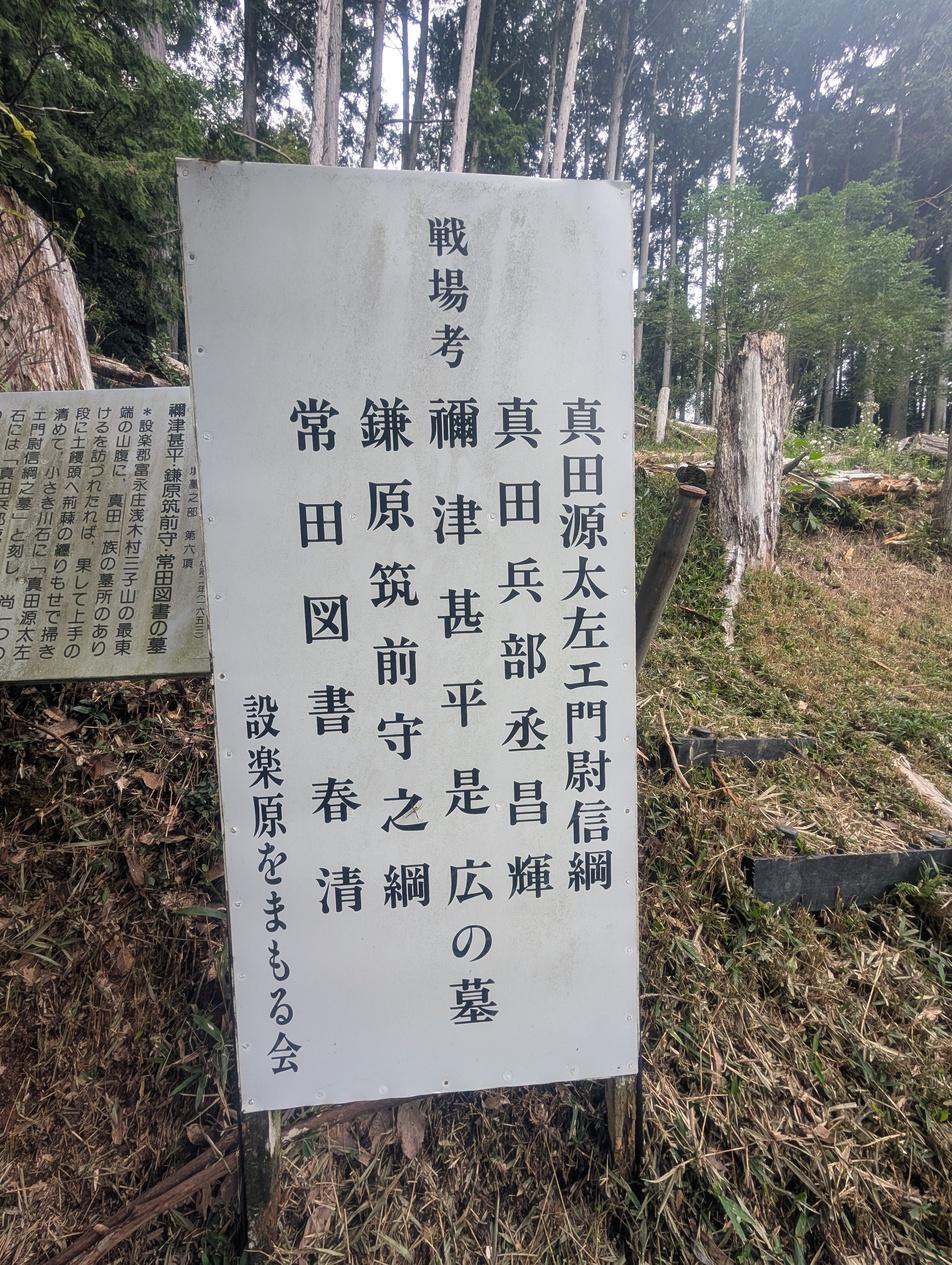 戦場考
真田源太左エ門尉信綱
真田兵部丞昌輝
禰津甚平是広の墓
鎌原筑前守之綱
常田図書春清
設楽原をまもる会
第六項
禰津甚平・鎌原筑前守・常田図書の墓
＊設楽郡富永庄浅木村三子山の最東
端の山腹に、真田一族の墓所のあり
けるを訪づれたれば、果して上手の
段に土饅頭へ荊棘の纒りもせで掃き
清めて、小さき川石に「真田源太左
エ門尉信綱之墓」と刻し、尚一つの
石には「真田兵部